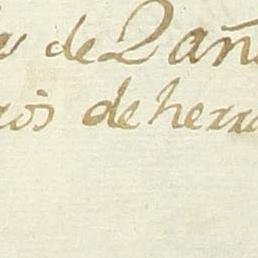 de 2 añ
ros de herra